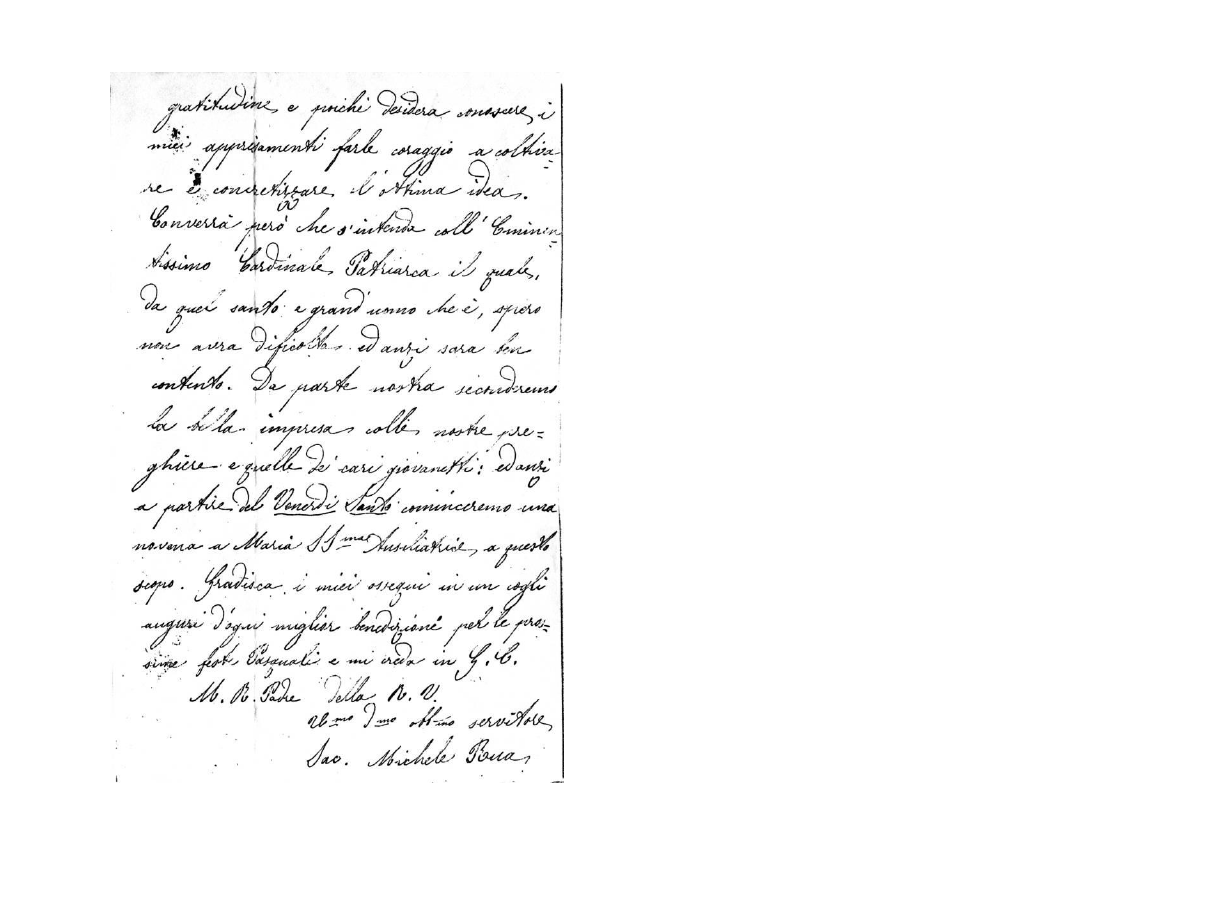 gratitudine, e poichè desidera conoscere, i
miei apprisamenti farle coraggio a coltiva=
re e concretizzare, l'ottima idea.
Converrà però che s'intenda coll'Eminen=
tissimo Cardinale, Patriarca il quale,
da quel santo e grand'uomo che è, spero
non avra dificoltà ed anzi sara ben
contento. Da parte nostra seconderemo
la bella impresa colle nostre pre=
ghiere e quelle de' cari giovanetti: ed anzi
a partire del Venerdi Santo cominceremo una
novena a Maria SS.ma Ausiliatrice, a questo
scopo. Gradisca i miei ossequi in un cogli
auguri d'ogni miglior benedizione per le pros=
sime fest. Pasquali e mi creda in G. C.
M. R. Padre della R. V.
Um̅o Dm̅o obbm̅o servitore,
Sac. Michele Rua,